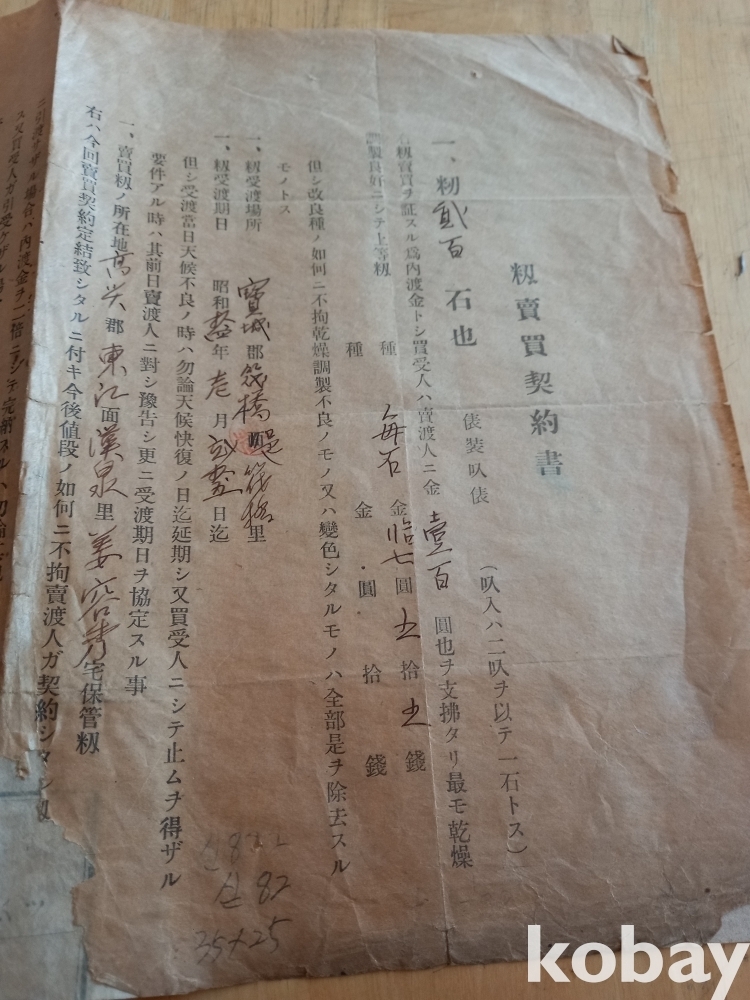 籾賣買契約書
一、籾貳百石也 俵装叺俵 (叺入ハ二叺ヲ以テ一石トス)
右籾賣買ヲ証スル爲内渡金トシ買受人ハ賣渡人ニ金壹百圓也ヲ支拂タリ最モ乾燥
調製良好ニシテ上等籾
種 毎石 金拾七圓五拾五錢
種 金 圓 拾 錢
但シ改良種ノ如何ニ不拘乾燥調製不良ノモノ又ハ變色シタルモノハ全部是ヲ除去スル
モノトス
一、籾受渡場所 寶城郡筏橋邑筏橋里
一、籾受渡期日 昭和 年 月 日迄
但シ受渡當日天候不良ノ時ハ勿論天候快復ノ日迄延期シ又買受人ニシテ止ムヲ得ザル
要件アル時ハ其前日賣渡人ニ對シ豫告シ更ニ受渡期日ヲ協定スル事
一、賣買籾ノ所在地高興郡東江面漢泉里姜 秀宅保管籾
右ハ今回賣買契約定結致シタルニ付キ今後値段ノ如何ニ不拘賣渡人ガ契約シタル籾
ニ引渡サザル場合ハ内渡金ヲ二倍ニシテ完納スルハ勿論
ス又買受人ガ引受ケザル場
82
25+25
kobay